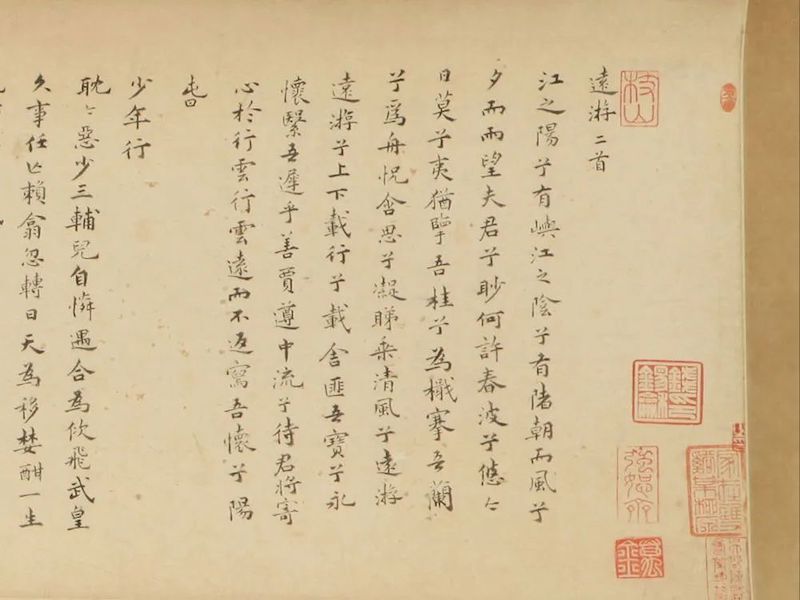 遠游二首
江之陽兮有嶼江之陰兮有陼朝而風兮
夕而雨望夫君兮眇何許春波兮悠〻
日莫兮夷猶擥吾桂兮為檝搴吾蘭
兮為舟怳含思兮凝睇乘清風兮遠游
遠游兮上下載行兮載舍匪吾寶兮永
懷繄吾遲乎善賈遵中流兮待君將寄
心於行雲行雲遠而不返寫吾懷兮陽
春
少年行
耽〻惡少三輔兒自憐遇合為佽飛武皇
久事任亡賴翕忽轉日天為移婪酣一生
枝山